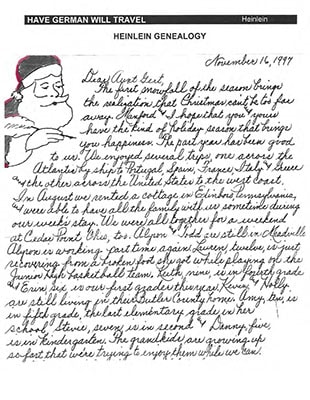 HAVE GERMAN WILL TRAVEL
Heinlein
HEINLEIN GENEALOGY
November 16, 1997
Dear Aunt Gert,
The first snowfall of the season brings
the realization that Christmas can't be too far
away. Manford & I hope that you & yours
have the kind of holiday season that brings
you happiness. The past year has been good
to us. We enjoyed several trips, one across the
Atlantic by ship to Portugal, Spain, France, Italy & Greece
& the other across the United States to the west coast.
In August we rented a cottage in Edinboro, Pennsylvania,
& were able to have all the family with us sometime during
our weeks stay. We were all together for a weekend
at Cedar Point, Ohio, too. & are still in Meadville
is working part time again. twelve, is just
recovering from a broken foot she got while playing on the
Junior High basketball team. Ruth, nine, is in fourth grade
& Erin, six is our first grader this year. & Holly
are still living in their Butler County home. Amy, ten, is
in fifth grade, the last elementary grade in her
school, Stevie, seven, is in second & Danny, five,
is in kindergarten. The grandkids are growing up
so fast that we're trying to enjoy them while we can.